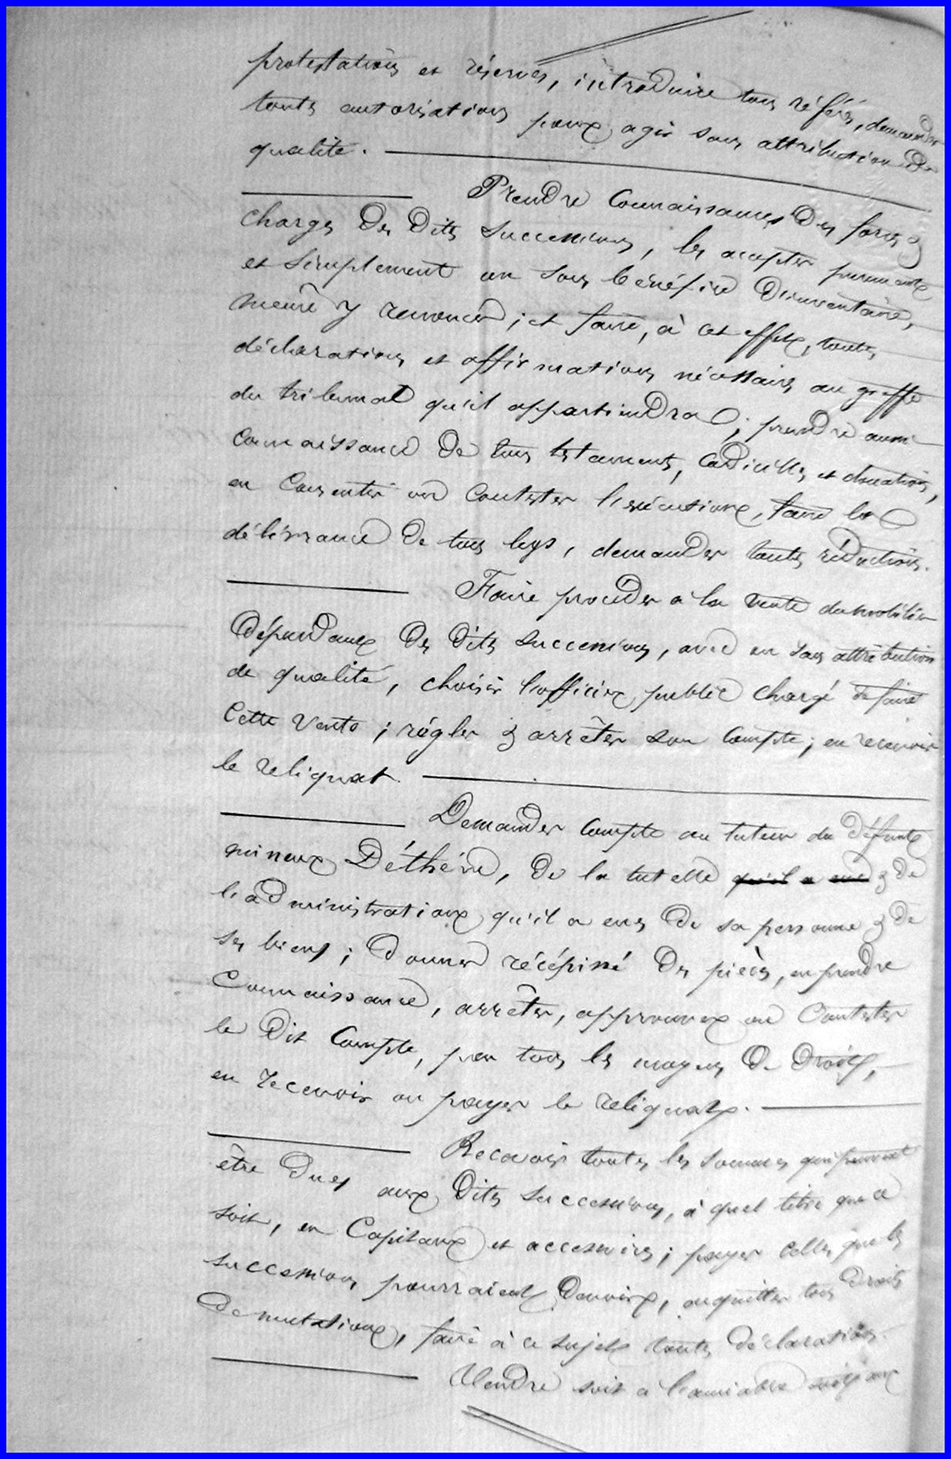 protestations et réserves, introduire tous référés, demander
toutes autorisations pour agir sans attribution de
qualité.
Prendre connaissances des forces &
charges des dites successions, les accepter purement
et simplement ou sous bénéfice d'inventaire,
même y renoncer ; et faire, à cet effet, toutes
déclarations et affirmations nécessaires au greffe
du tribunal qu'il appartiendra ; prendre aussi
connaissance de tous testaments, codicilles et donations,
en consentir ou contester l'exécution, faire la
délivrance de tous legs, demander toutes réductions.
Faire procéder à la vente du mobilier
dépendant des dites successions, avec ou sans attribution
de qualité, choisir l'officier public chargé de faire
cette vente ; régler & arrêter son compte ; en recevoir
le reliquat.
Demander compte au tuteur du défunt
mineur Déthévé, de la tutelle qu'il a eue & de
l'administration qu'il a eus de sa personne & de
ses biens ; donner récépissé des pièces, en prendre
connaissance, arrêter, approuver ou contester
le dit compte, par tous les moyens de droit,
en recevoir ou payer le reliquat.
Recevoir toutes les sommes qui peuvent
être dues aux dites successions, à quel titre que ce
soit, en capitaux et accessoires ; payer celles que les
successions pourraient devoir, acquitter tous droits
de mutation, faire à ce sujet toutes déclarations.
Vendre soit à l'amiable soit aux